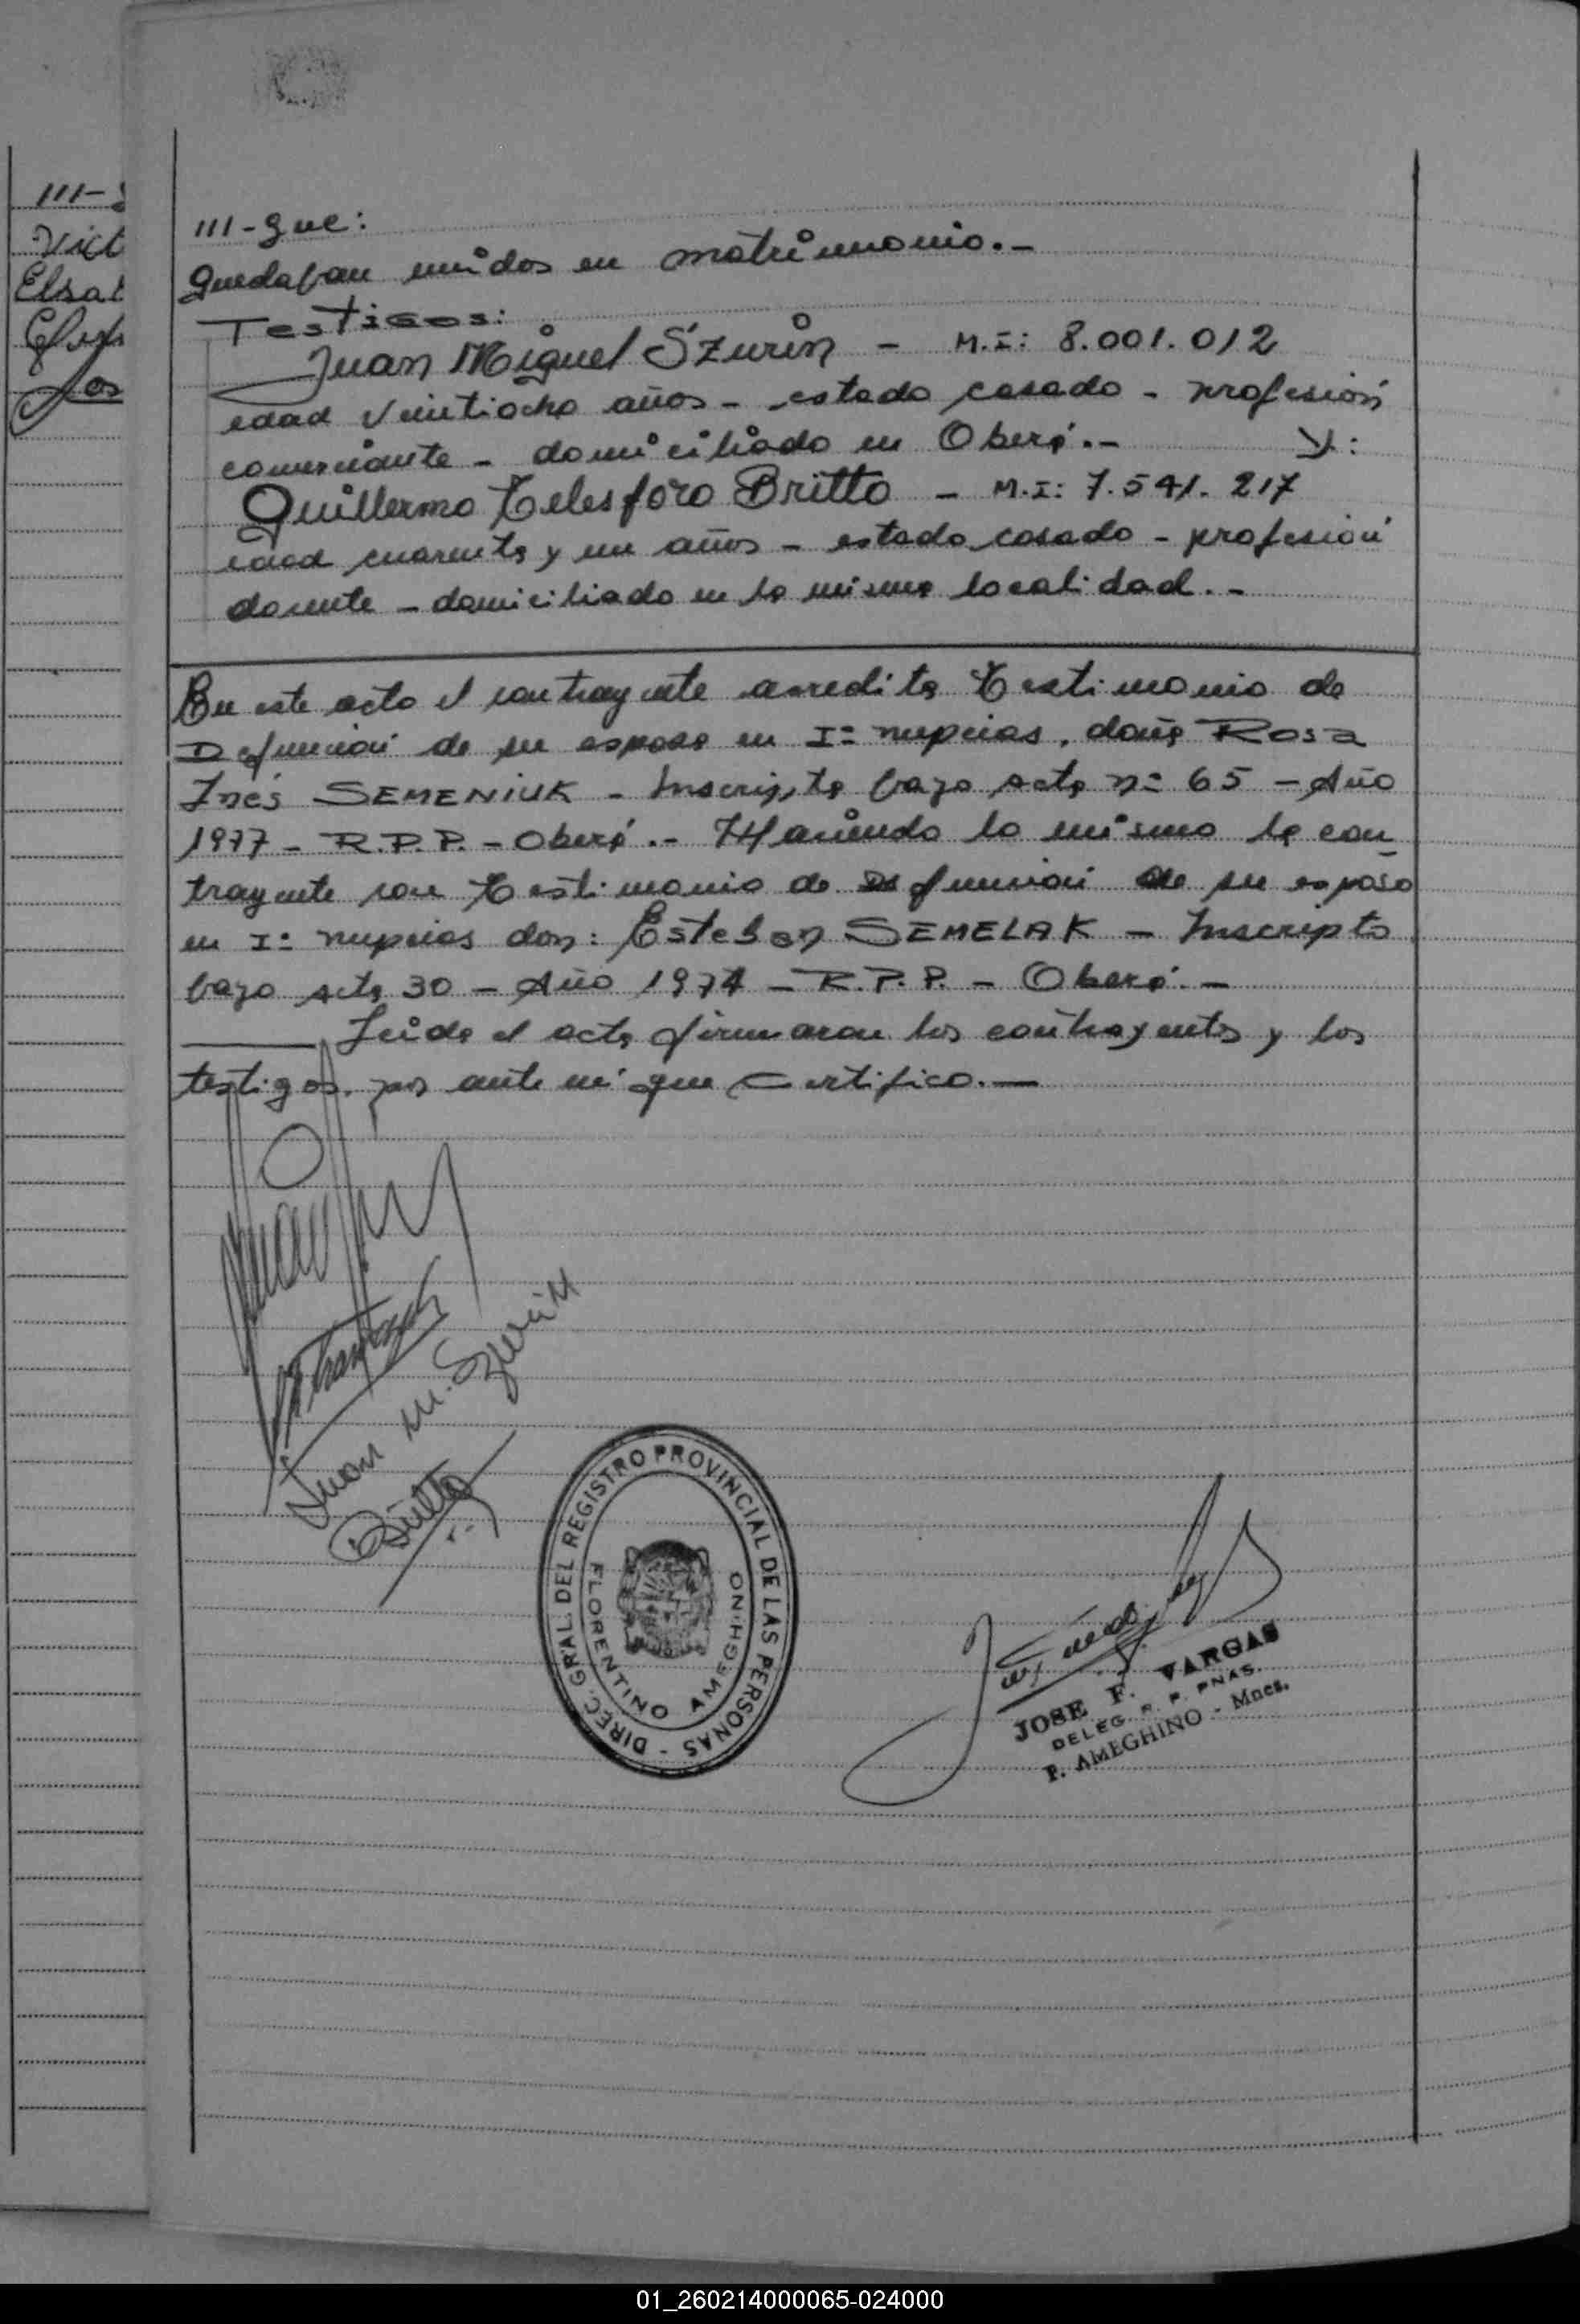 III-
Vict
Elsa
III-que:
quedaban unidos en matrimonio.-
Testigos:
Juan Miguel Szurin - M.I: 8.001.012
edad veintiocho años - estado casado - profesión
comerciante - domiciliado en Oberá.- Y:
Guillermo Telesforo Britto - M.I: 7.541.217
edad cuarenta y un años - estado casado - profesión
docente - domiciliado en la misma localidad.-
En este acto el contrayente acredita Testimonio de
Defunción de su esposa en I= nupcias, doña Rosa
Inés SEMENIUK - Inscripta bajo Acta n= 65 - Año
1977 - R.P.P. - Oberá.- Haciendo lo mismo la con-
trayente con Testimonio de Defunción de su esposo
en I= nupcias don: Esteban SEMELAK - Inscripto
bajo Acta 30 - Año 1974 - R.P.P. - Oberá.-
Leída el acta firmaron los contrayentes y los
testigos, por ante mí que Certifico.-
Juan M. Szurin
Britto
DIREC. GRAL. DEL REGISTRO PROVINCIAL DE LAS PERSONAS -
FLORENTINO AMEGHINO
JOSE F. VARGAS
DELEG. R. P. PNAS.
F. AMEGHINO - Mnes.
01_260214000065-024000